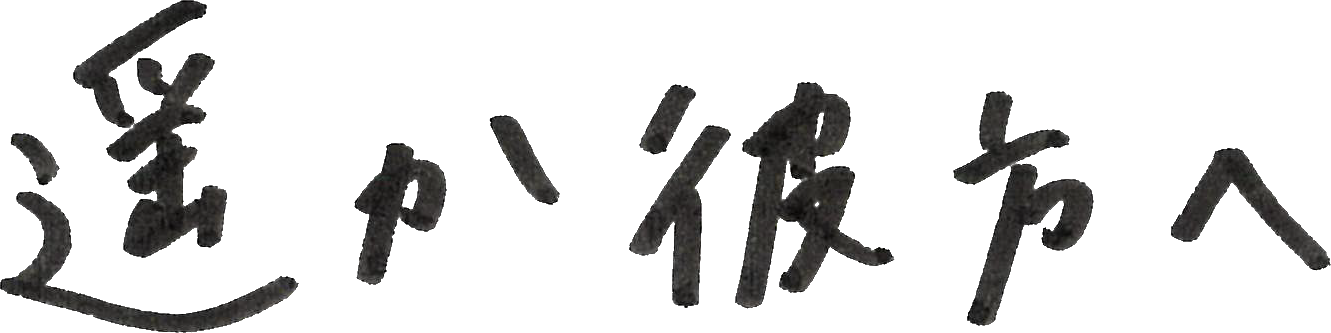 遥か彼方へ